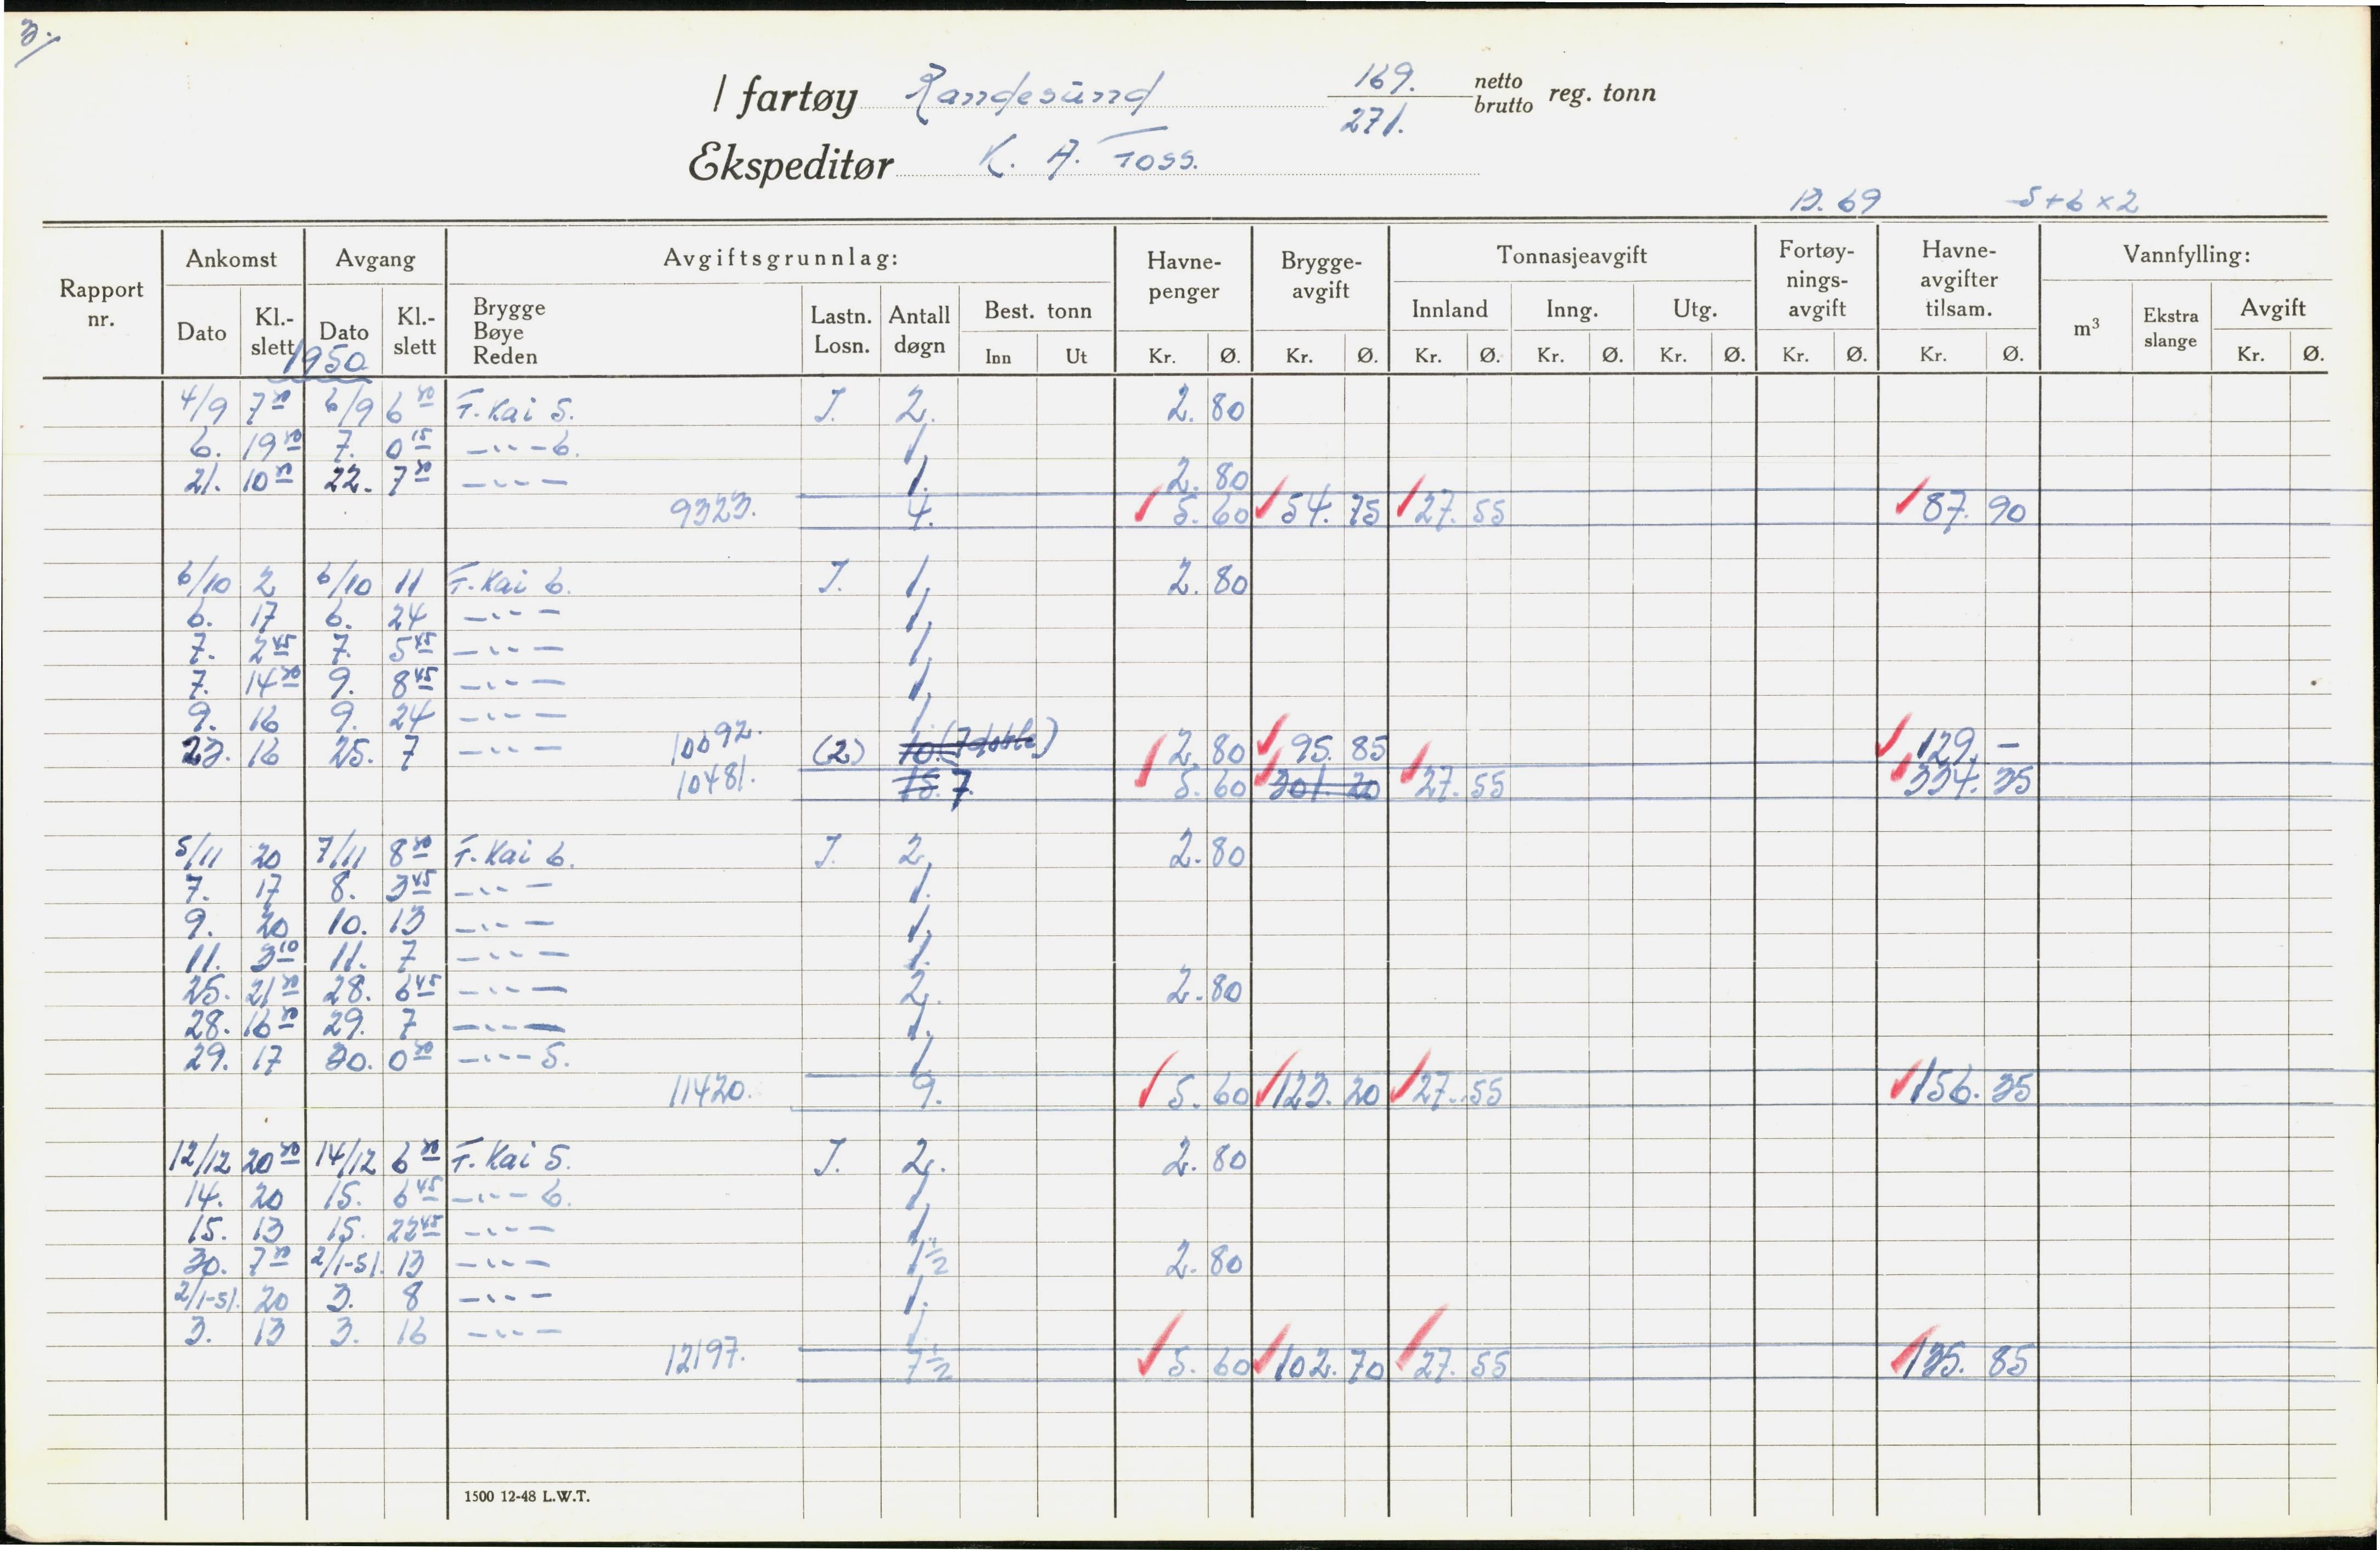 3.
/ fartøy Randesund 169. netto
271. brutto reg. tonn
Ekspeditør K. A. Foss.
13.69 5+6×2
Rapport nr. Ankomst Avgang Avgiftsgrunnlag: Havne-penger Brygge-avgift Tonnasjeavgift Fortøy-nings-avgift Havne-avgifter tilsam. Vannfylling:
Dato Kl.-slett Dato Kl.-slett Brygge Bøye Reden Lastn. Losn. Antall døgn Best. tonn Innland Inng. Utg. m³ Ekstra slange Avgift
Inn Ut Kr. Ø. Kr. Ø. Kr. Ø. Kr. Ø. Kr. Ø. Kr. Ø. Kr. Ø. Kr. Ø.
1950
4/9 7 30 6/9 6 30 F. Kai 5. I. 2. 2. 80
6. 19 30 7. 0 15 — " — 6. 1.
21. 10 30 22. 7 30 — " — 1. 2. 80
9323. 4. 5. 60 54. 75 27. 55 87. 90
6/10 2 6/10 11 F. Kai 6. I. 1. 2. 80
6. 17 6. 24 — " — 1.
7. 2 45 7. 5 45 — " — 1.
7. 14 30 9. 8 45 — " — 1.
9. 16 9. 24 — " — 1.
23. 16 25. 7 — " — 10692. (2) 10. (7 doble) 2. 80 95. 85 129. —
10481. 15. 7 5. 60 301. 20 27. 55 334. 35
5/11 20 7/11 8 30 F. Kai 6. I. 2. 2. 80
7. 17 8. 3 45 — " — 1.
9. 20 10. 13 — " — 1.
11. 3 10 11. 7 — " — 1.
25. 21 30 28. 6 45 — " — 2. 2. 80
28. 16 30 29. 7 — " — 1.
29. 17 30. 0 30 — " — 5. 1
11420. 9. 5. 60 123. 20 27. 55 156. 35
12/12 20 30 14/12 6 30 F. Kai 5. I. 2. 2. 80
14. 20 15. 6 45 — " — 6. 1.
15. 13 15. 22 45 — " — 1.
30. 7 30 2/1-51. 13 — " — 1 1/2 2. 80
2/1-51. 20 3. 8 — " — 1.
3. 13 3. 16 — " — 1
12197. 7 1/2 5. 60 102. 70 27. 55 135. 85
1500 12-48 L.W.T.